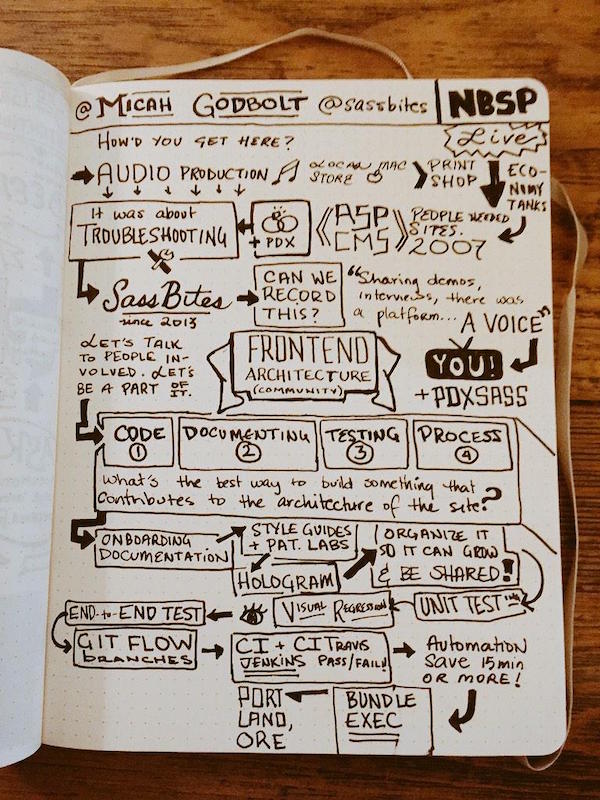 @MICAH GODBOLT @sassbites NBSP
Live
HOW'D YOU GET HERE?
AUDIO PRODUCTION LOCAL MAC STORE PRINT SHOP ECO-
NOMY
TANKS
It was about
TROUBLESHOOTING
+ PDX
ASP
CMS
PEOPLE NEEDED
SITES.
2007
SassBites
since 2013
CAN WE
RECORD
THIS?
"Sharing demos,
interviews, there was
a platform... A VOICE"
LET'S TALK
TO PEOPLE IN-
VOLVED. LET'S
BE A PART OF IT.
FRONTEND
ARCHITECTURE
(COMMUNITY)
YOU!
+PDXSASS
CODE
1
DOCUMENTING
2
TESTING
3
PROCESS
4
What's the best way to build something that
contributes to the architecture of the site?
ONBOARDING
DOCUMENTATION
STYLE GUIDES
+ PAT. LABS
HOLOGRAM
ORGANIZE IT
SO IT CAN GROW
& BE SHARED!
END-to-END TEST
VISUAL REGRESSION
UNIT TESTING
GIT FLOW
BRANCHES
CI + CI TRAVIS
JENKINS PASS/FAIL!
Automation
Save 15 min
OR MORE!
PORT
LAND,
ORE
BUNDLE
EXEC